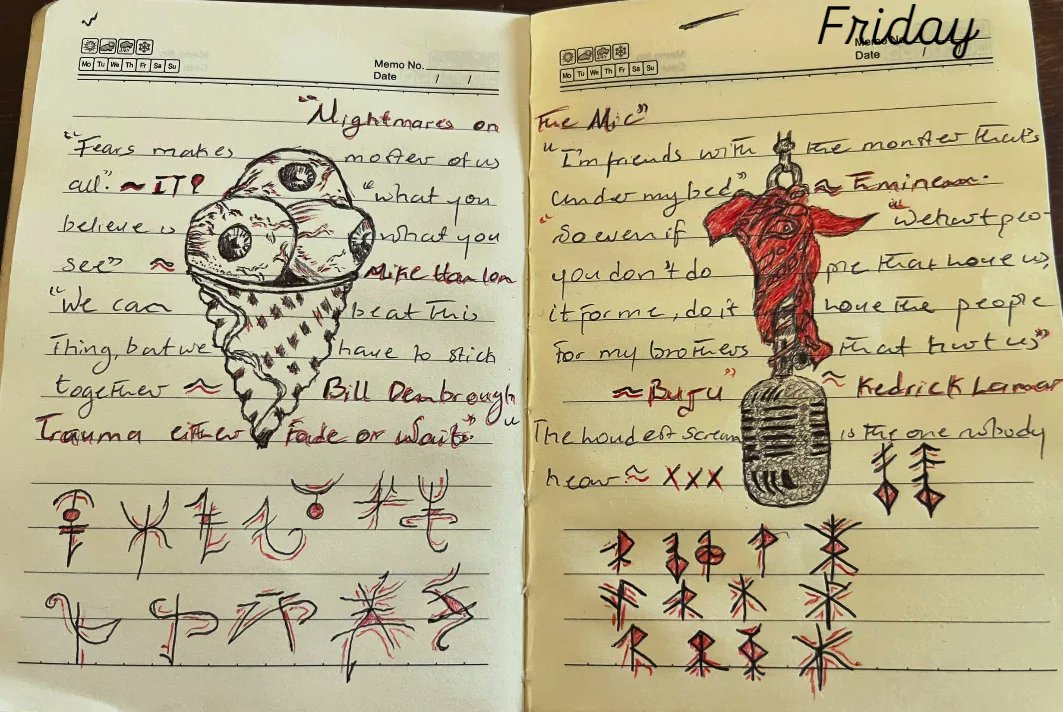 Memo No.
Mo Tu We Th Fr Sa Su
Date / /
"Nightmares on
"Fears makes moster of us
all." ~ IT?
"what you
believe is what you
see" ≈ Mike Hanlon
"We can beat this
Thing, but we have to stick
together ≈ Bill Denbrough"
Trauma either Fade or Wait."
Friday
Memo No.
Mo Tu We Th Fr Sa Su
Date / /
The Mic"
"I'm friends with the monster that's
under my bed" ≈ Eminem.
"So even if
you don't do
it for me, do it
for my brothers
≈ Buju"
"We hurt peo-
ple that love us,
love the people
that hurt us"
≈ Kedrick Lamar
"The loudest scream is the one nobody
hear ≈ XXX